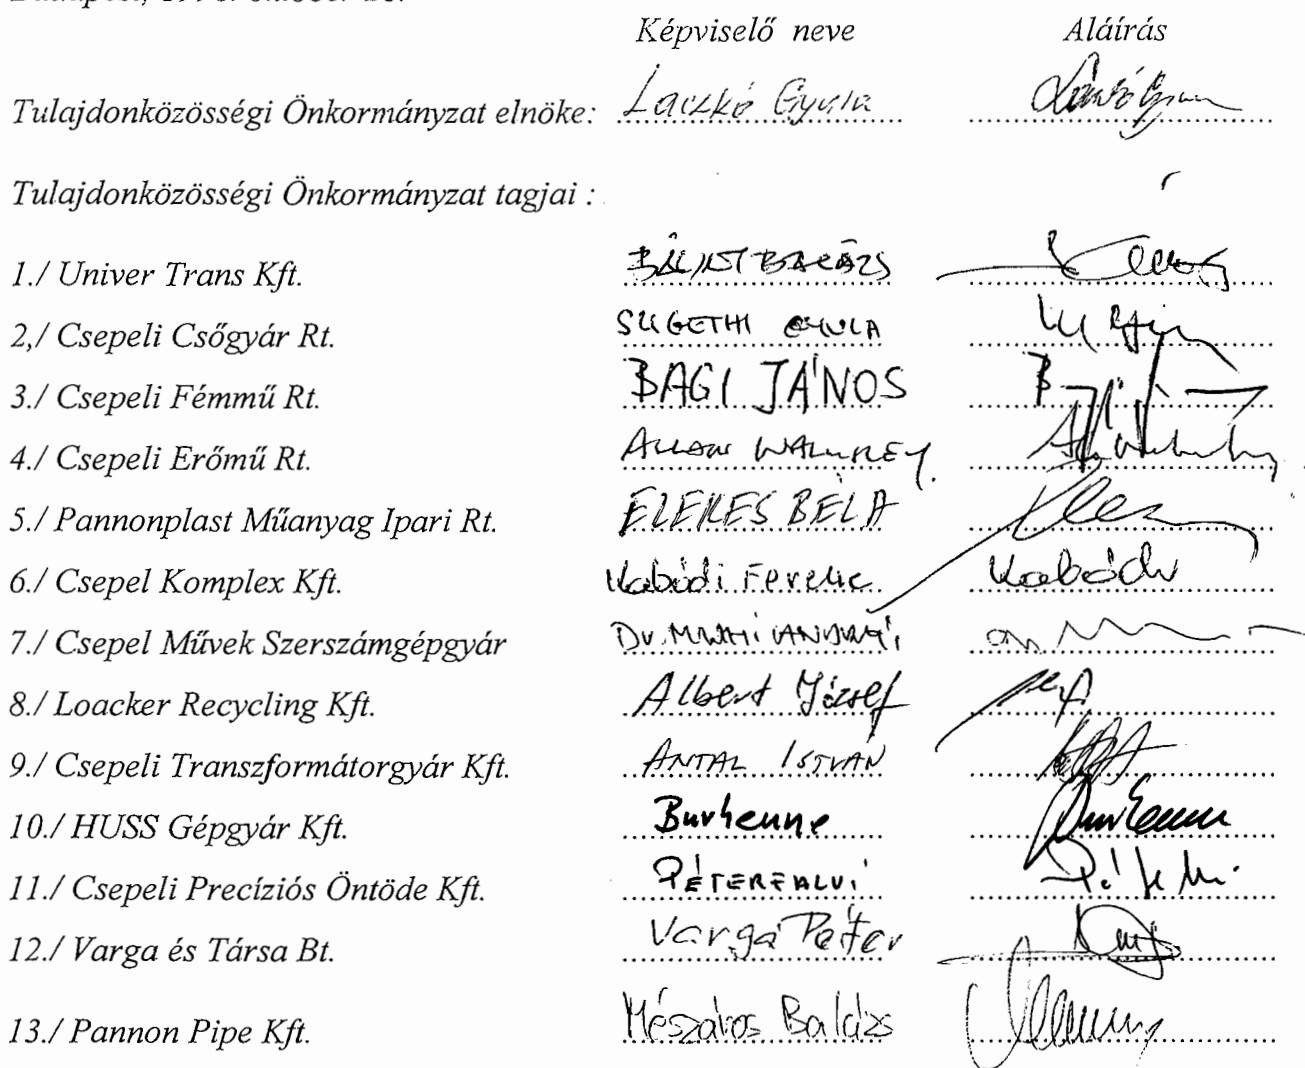 Képviselő neve Aláírás
Tulajdonközösségi Önkormányzat elnöke: Laczkó Gyula
Tulajdonközösségi Önkormányzat tagjai :
1./ Univer Trans Kft. BÁLINT BALÁZS
2,/ Csepeli Csőgyár Rt. SZIGETHI GYULA
3./ Csepeli Fémmű Rt. BAGI JÁNOS
4./ Csepeli Erőmű Rt. ALLAN
5./ Pannonplast Műanyag Ipari Rt. ELEKES BÉLA
6./ Csepel Komplex Kft. Kabódi Ferenc
7./ Csepel Művek Szerszámgépgyár Dr.
8./ Loacker Recycling Kft. Albert József
9./ Csepeli Transzformátorgyár Kft. ANTAL ISTVÁN
10./ HUSS Gépgyár Kft. Burhenne
11./ Csepeli Precíziós Öntöde Kft. PÉTERFALVI
12./ Varga és Társa Bt. Varga Péter
13./ Pannon Pipe Kft. Mészáros Balázs